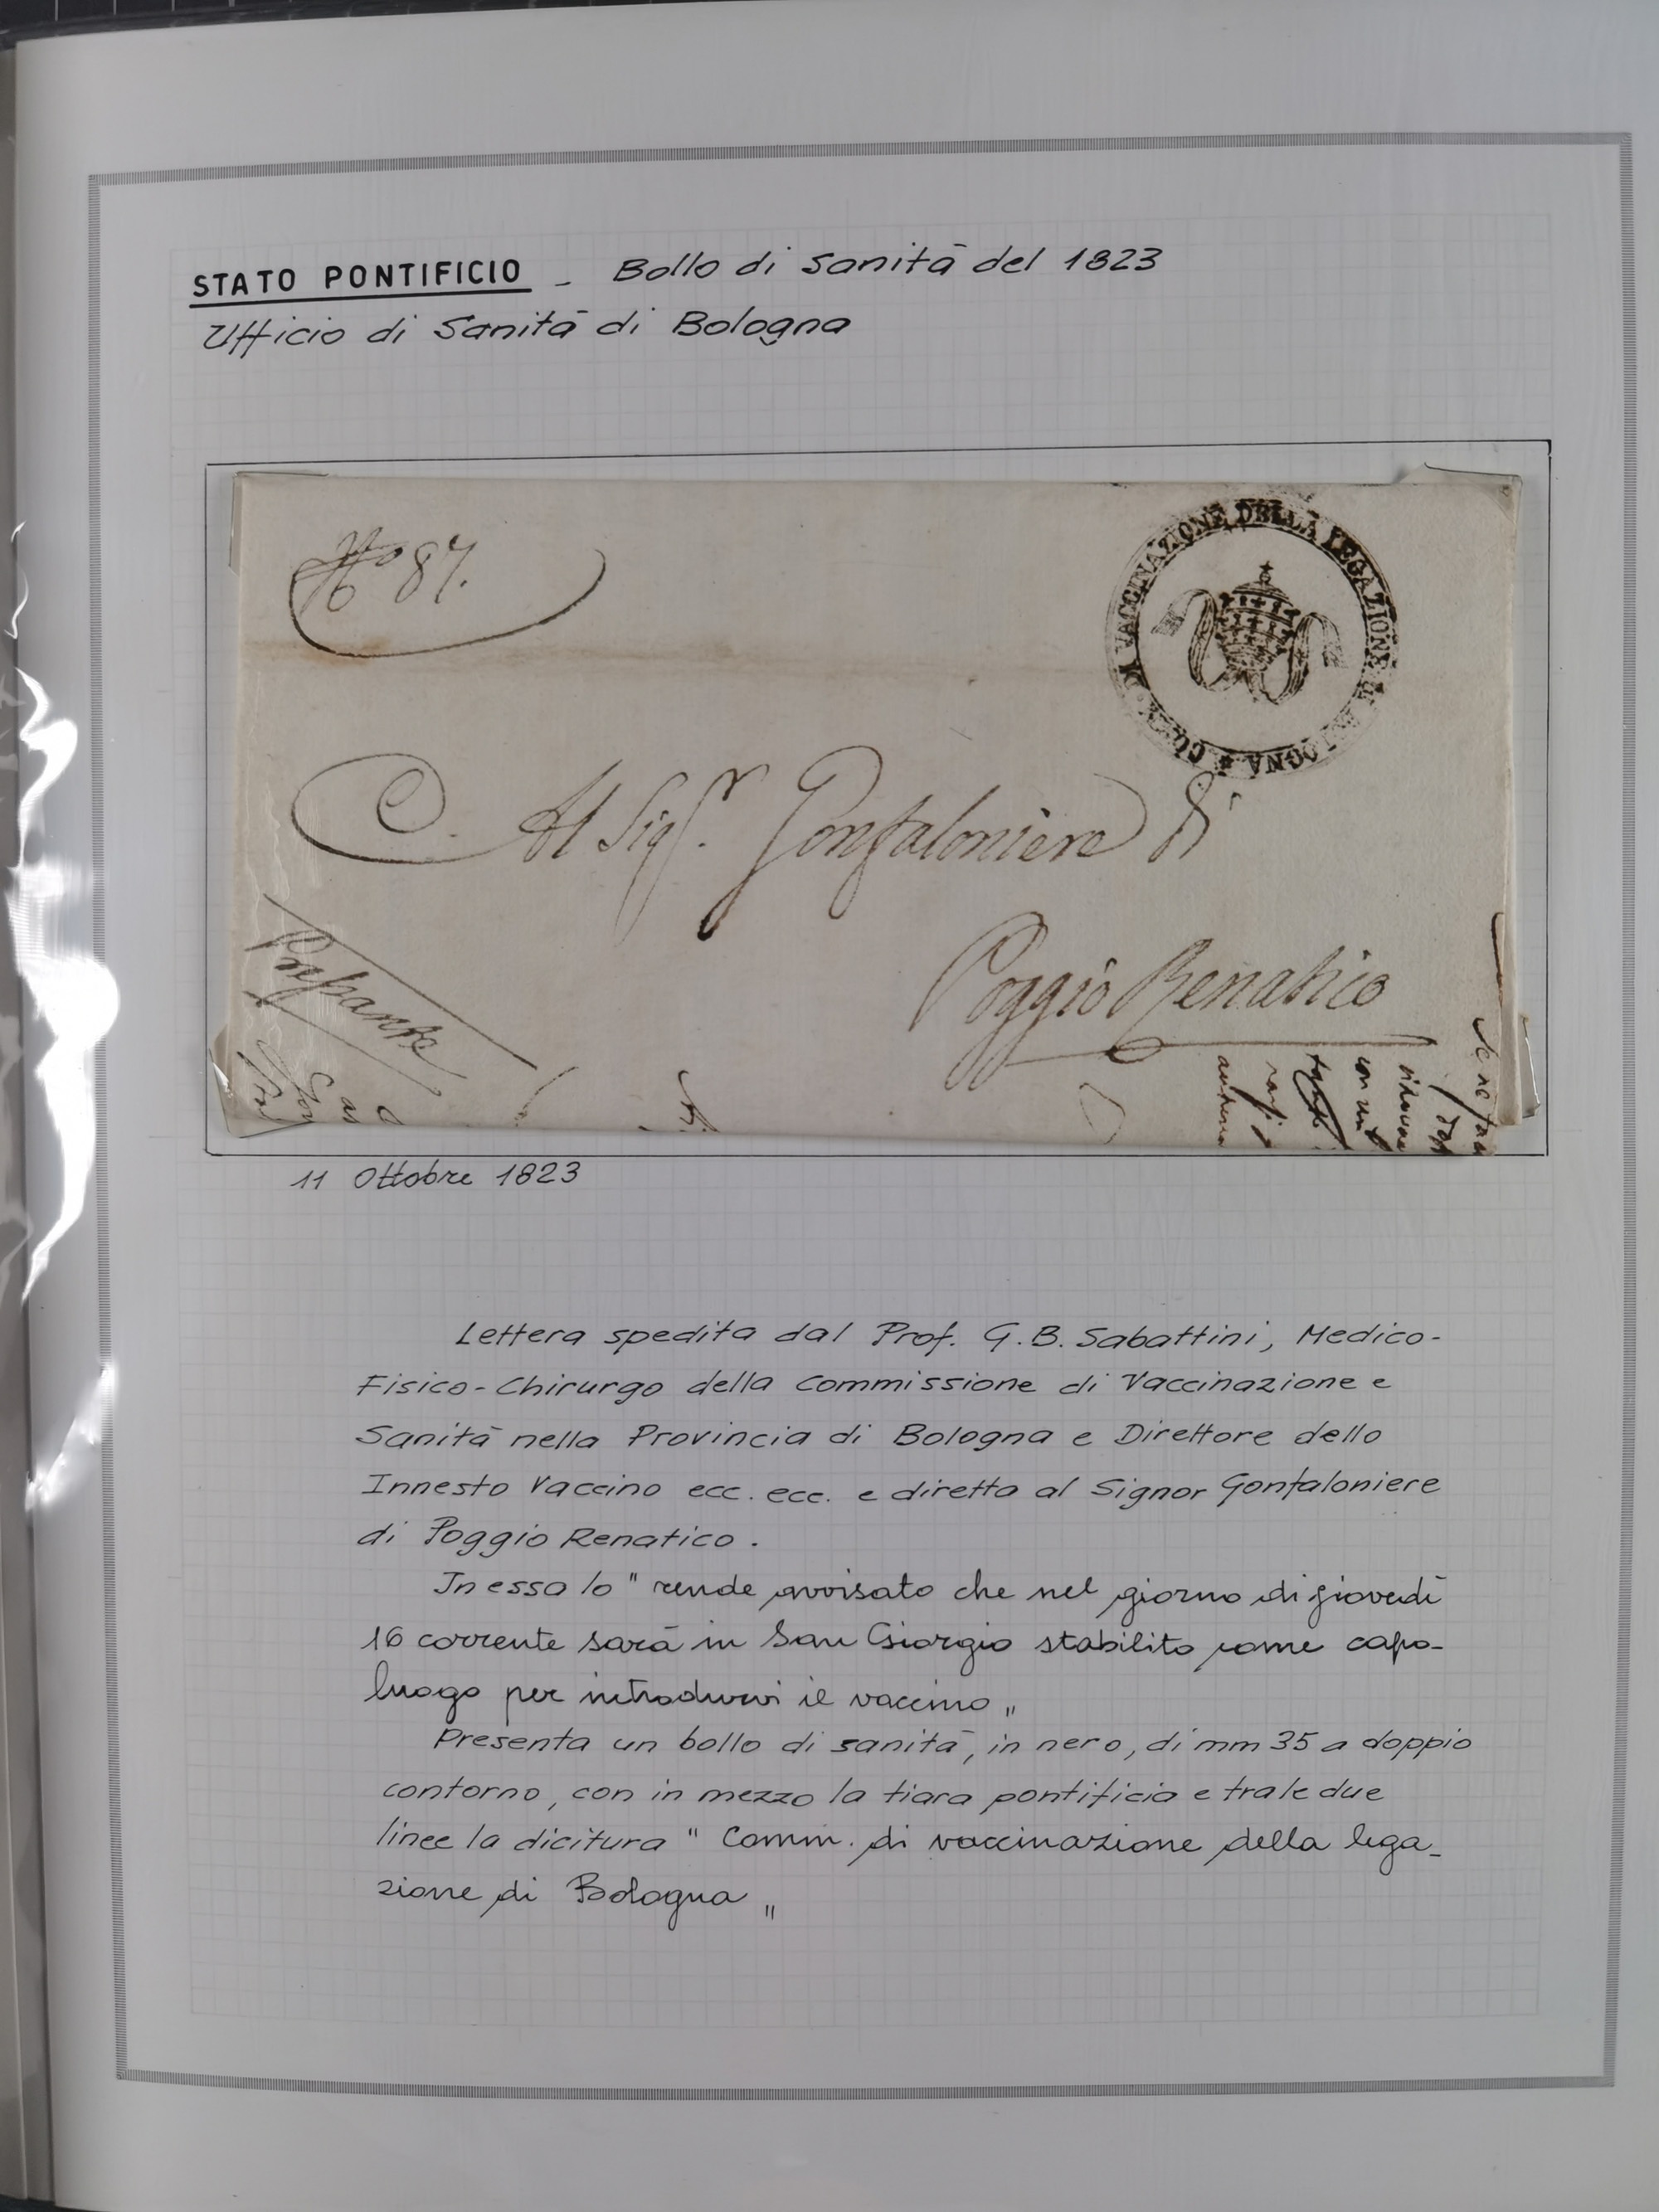 STATO PONTIFICIO - Bollo di Sanità del 1823
Ufficio di Sanità di Bologna
No 87.
DI VACCINAZIONE DELLA LEGAZIONE
Al Sigr. Gonfaloniere di
Poggio Renatico
Pressante
11 Ottobre 1823
Lettera spedita dal Prof. G.B. Sabattini, Medico-
Fisico-Chirurgo della Commissione di Vaccinazione e
Sanità nella Provincia di Bologna e Direttore dello
Innesto Vaccino ecc. ecc. e diretta al Signor Gonfaloniere
di Poggio Renatico.
In essa lo " rende avvisato che nel giorno di giovedì
16 corrente sarà in San Giorgio stabilito come capo-
luogo per introdurvi il vaccino "
Presenta un bollo di sanità, in nero, di mm 35 a doppio
contorno, con in mezzo la tiara pontificia e tra le due
linee la dicitura " Comm. di vaccinazione della lega-
zione di Bologna "